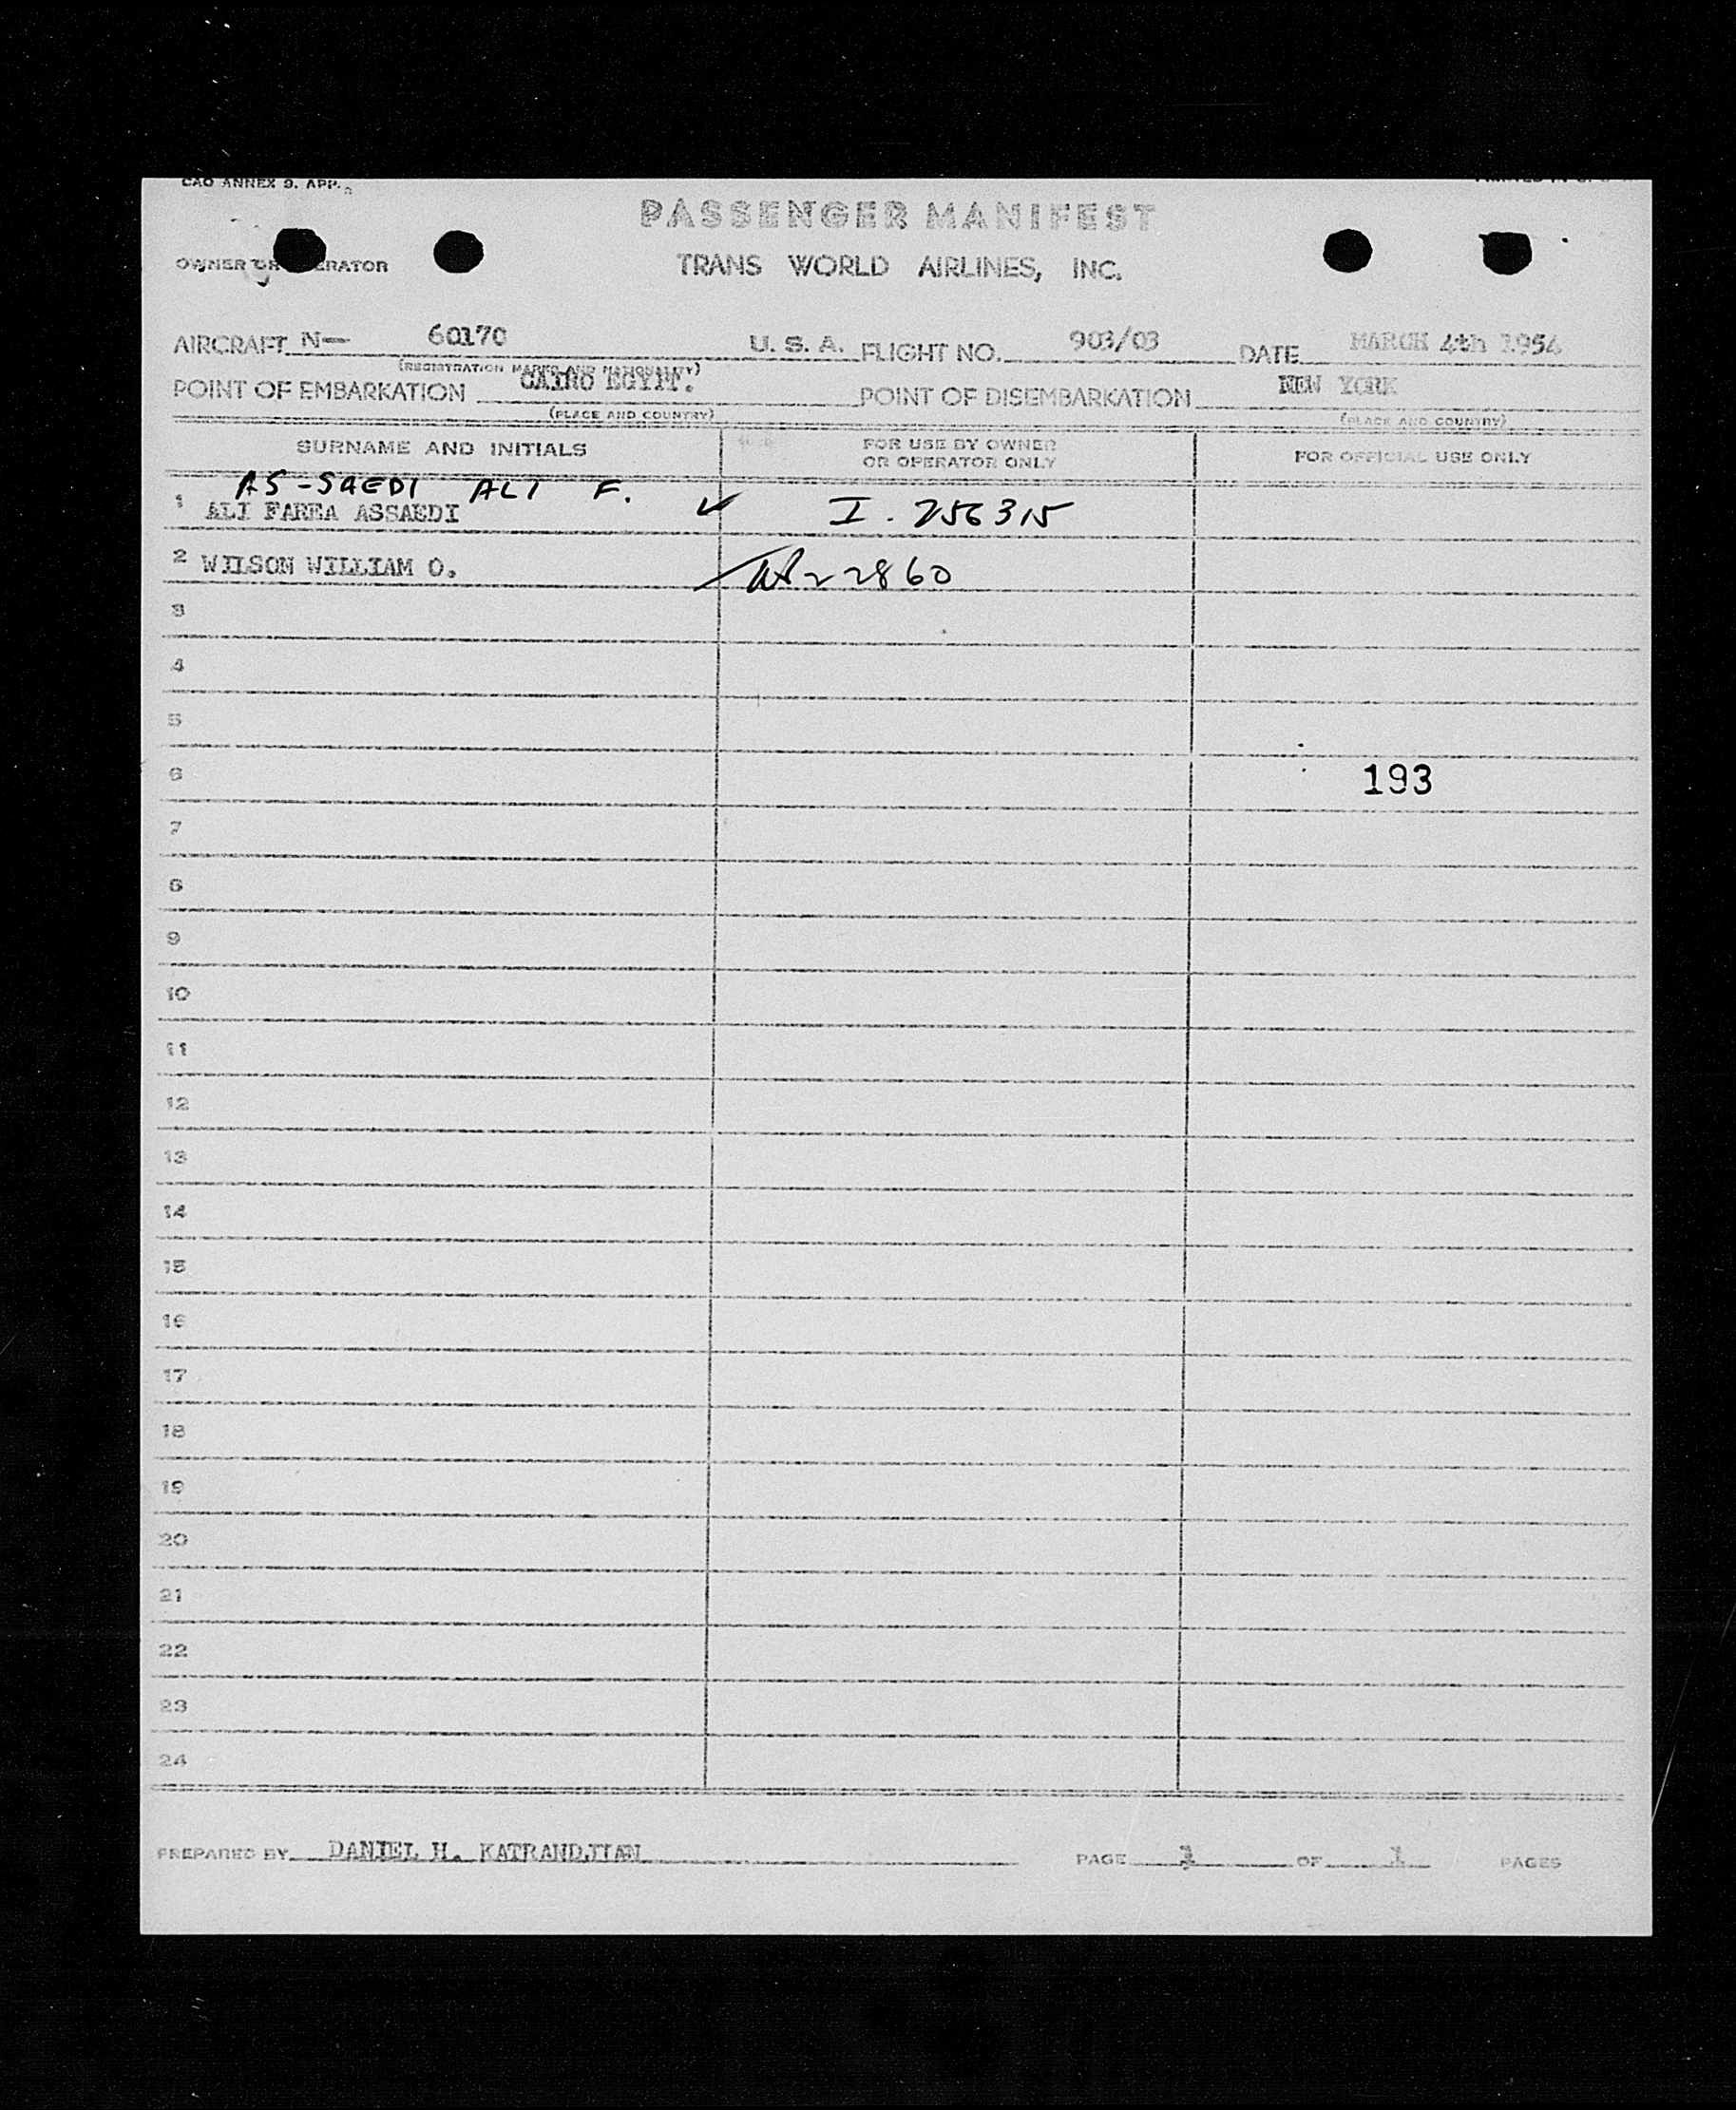 CAO ANNEX 9. APP.
PASSENGER MANIFEST
OWNER OR OPERATOR TRANS WORLD AIRLINES, INC.
AIRCRAFT N— 60170 U. S. A. FLIGHT NO. 903/03 DATE MARCH 4th 1954
(REGISTRATION MARKS AND NATIONALITY)
POINT OF EMBARKATION CAIRO EGYPT. POINT OF DISEMBARKATION NEW YORK
(PLACE AND COUNTRY) (PLACE AND COUNTRY)
SURNAME AND INITIALS FOR USE BY OWNER OR OPERATOR ONLY FOR OFFICIAL USE ONLY
AS-SAEDI ALI F.
1 ALI FAREA ASSAEDI ✓ I. 256315
2 WILSON WILLIAM O. 22860
3
4
5
6 193
7
8
9
10
11
12
13
14
15
16
17
18
19
20
21
22
23
24
PREPARED BY DANIEL H. KATRANDJIAN PAGE 1 OF 1 PAGES